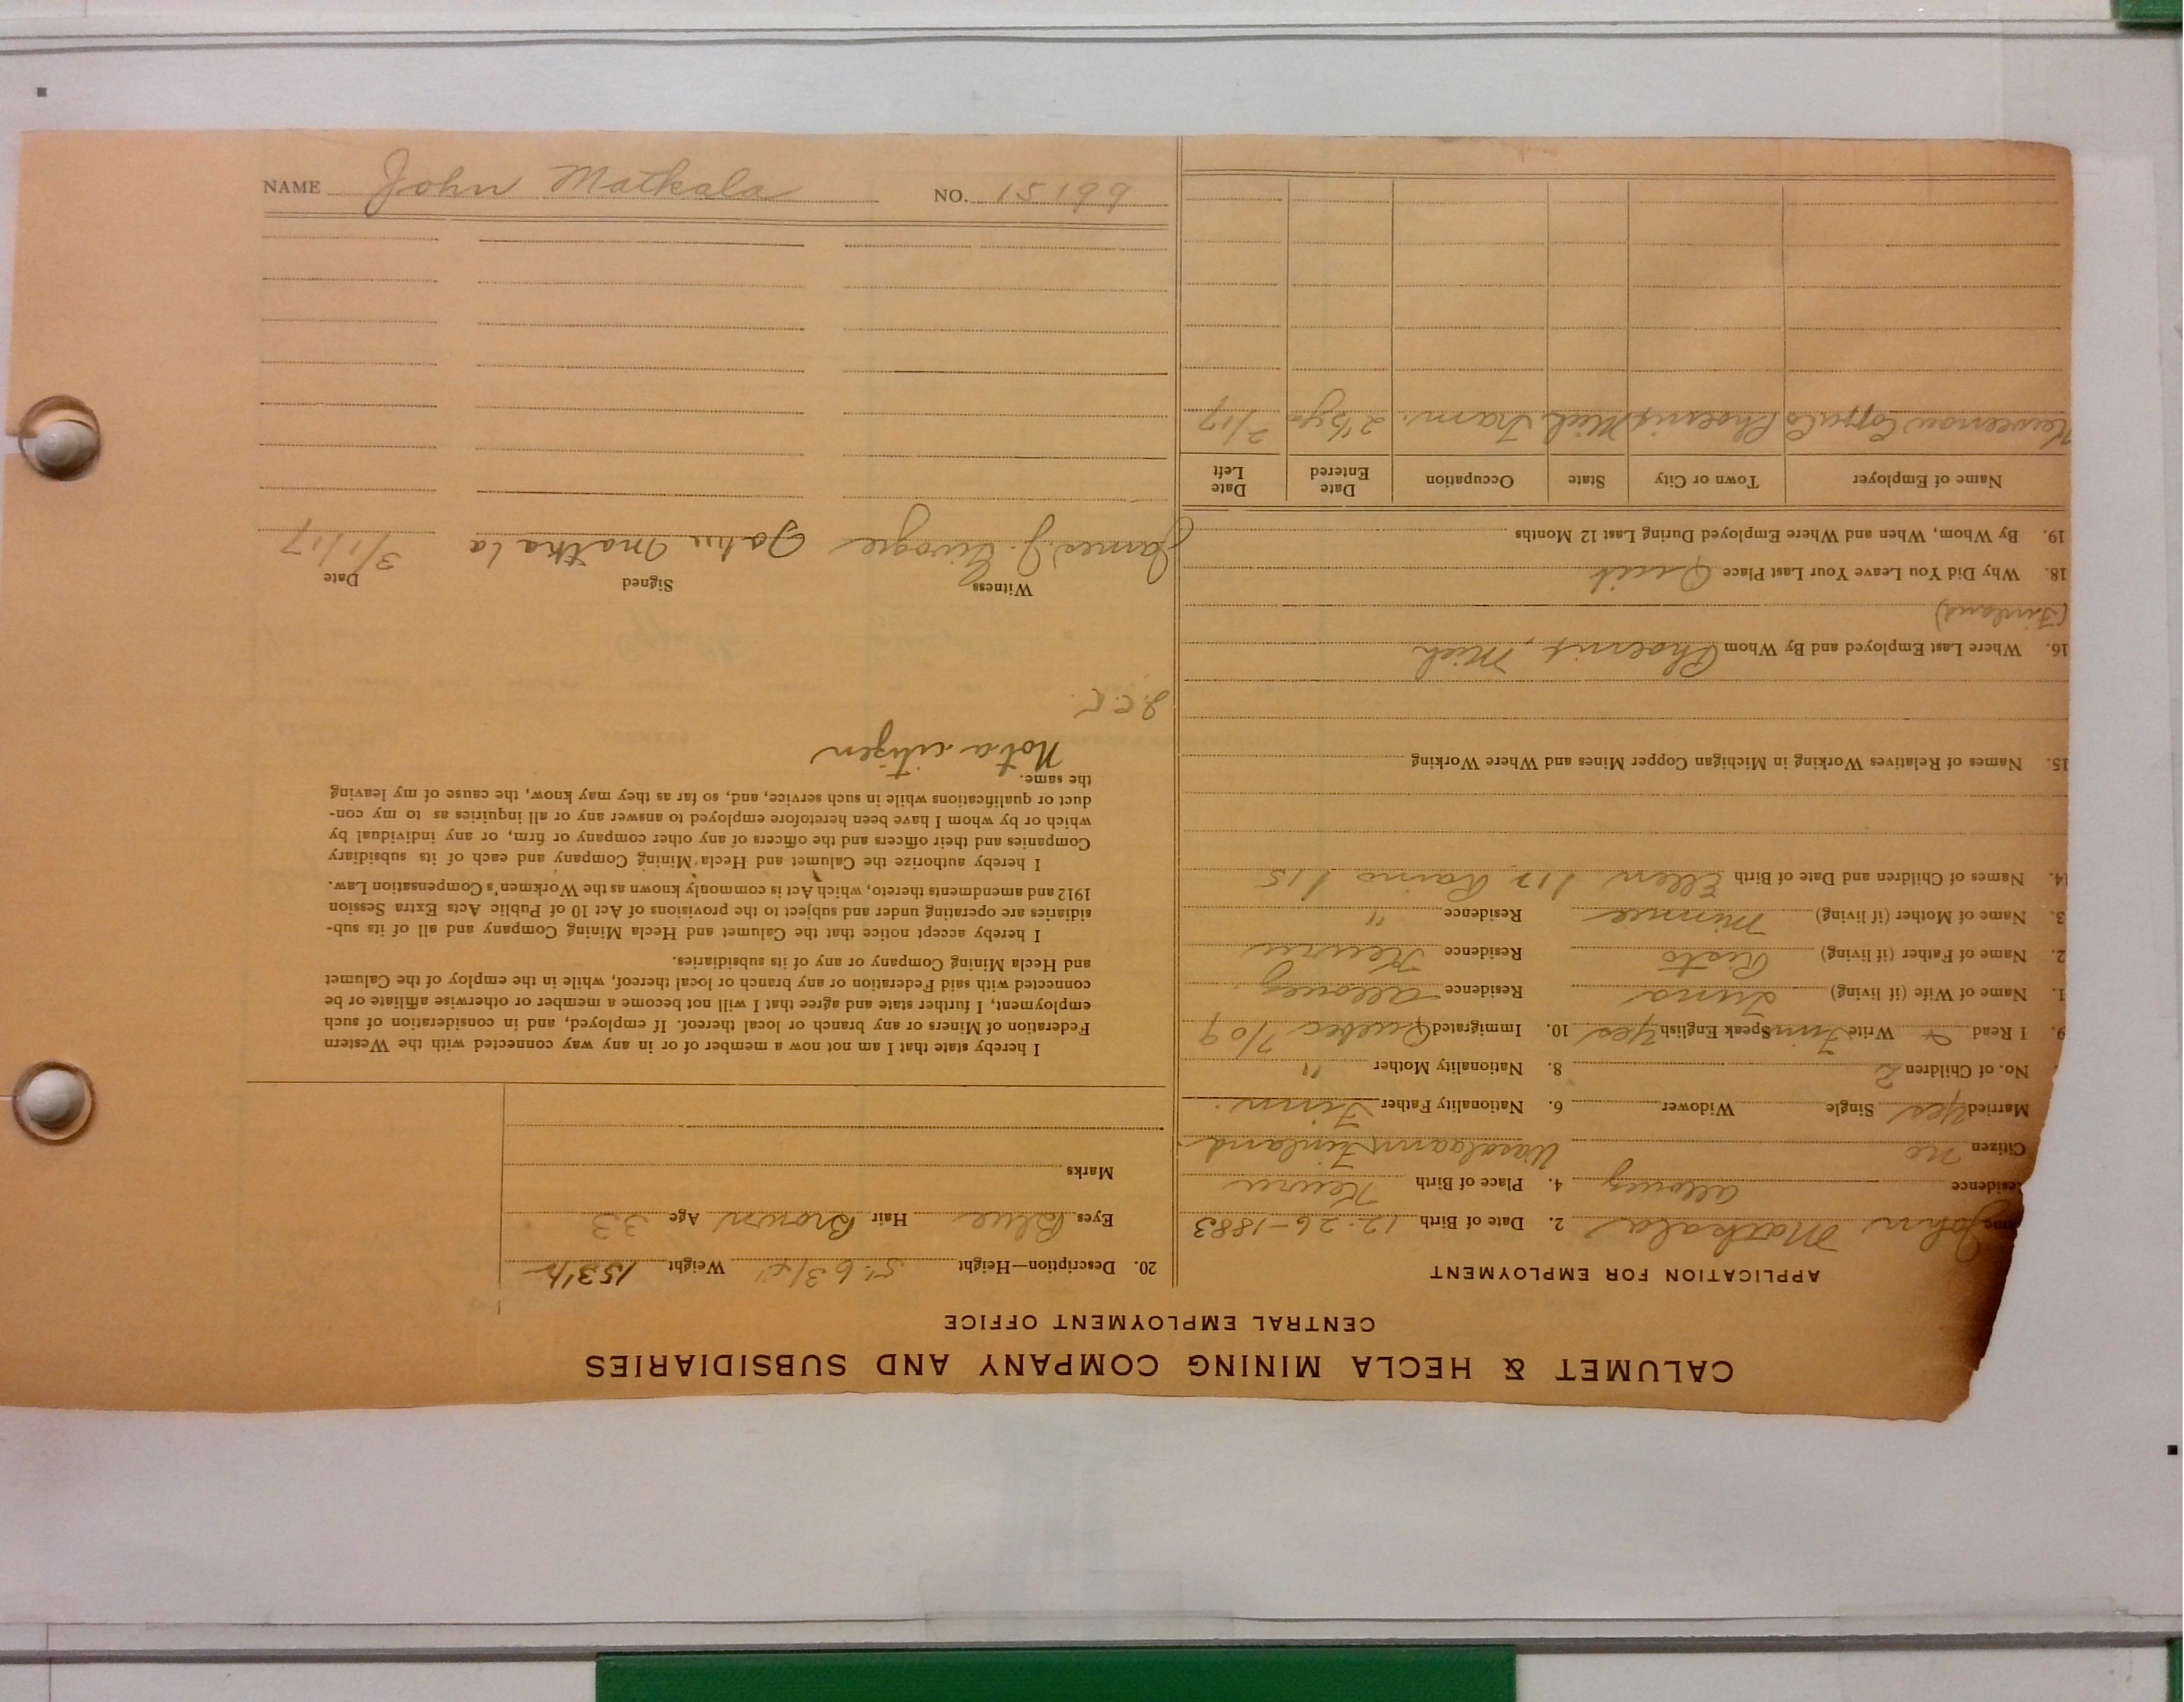 CALUMET & HECLA MINING COMPANY AND SUBSIDIARIES
CENTRAL EMPLOYMENT OFFICE
APPLICATION FOR EMPLOYMENT
John Matkala 2. Date of Birth 12-26-1883
Residence Allouez 4. Place of Birth Keuru
Citizen no Wasalaani Finland
Married Yes Single Widower 6. Nationality Father Finn.
No. of Children 2 8. Nationality Mother "
9. I Read & Write Finn Speak English Yes 10. Immigrated Quebec 7/09
1. Name of Wife (if living) Residence Allouez.
2. Name of Father (if living) Risto Residence Keuru
3. Name of Mother (if living) Minnie Residence "
14. Names of Children and Date of Birth Ellen 1/12 Raino 1/15
15. Names of Relatives Working in Michigan Copper Mines and Where Working
16. Where Last Employed and By Whom Phoenix, Mich
(Finland)
18. Why Did You Leave Your Last Place Quit
19. By Whom, When and Where Employed During Last 12 Months
Name of Employer Town or City State Occupation Date Entered Date Left
Keweenaw Copper Co Phoenix Mich Tram. 2 1/2 yrs 2/17
20. Description—Height 5' 6 3/4" Weight 153 1/2
Eyes Blue Hair Brown Age 33
Marks
I hereby state that I am not now a member of or in any way connected with the Western
Federation of Miners or any branch or local thereof. If employed, and in consideration of such
employment, I further state and agree that I will not become a member or otherwise affiliate or be
connected with said Federation or any branch or local thereof, while in the employ of the Calumet
and Hecla Mining Company or any of its subsidiaries.
I hereby accept notice that the Calumet and Hecla Mining Company and all of its sub-
sidiaries are operating under and subject to the provisions of Act 10 of Public Acts Extra Session
1912 and amendments thereto, which Act is commonly known as the Workmen's Compensation Law.
I hereby authorize the Calumet and Hecla Mining Company and each of its subsidiary
Companies and their officers and the officers of any other company or firm, or any individual by
which or by whom I have been heretofore employed to answer any or all inquiries as to my con-
duct or qualifications while in such service, and, so far as they may know, the cause of my leaving
the same.
Not a citizen
Witness Signed Date
James J. John Matkala 3/1/17
NAME John Matkala NO. 15199